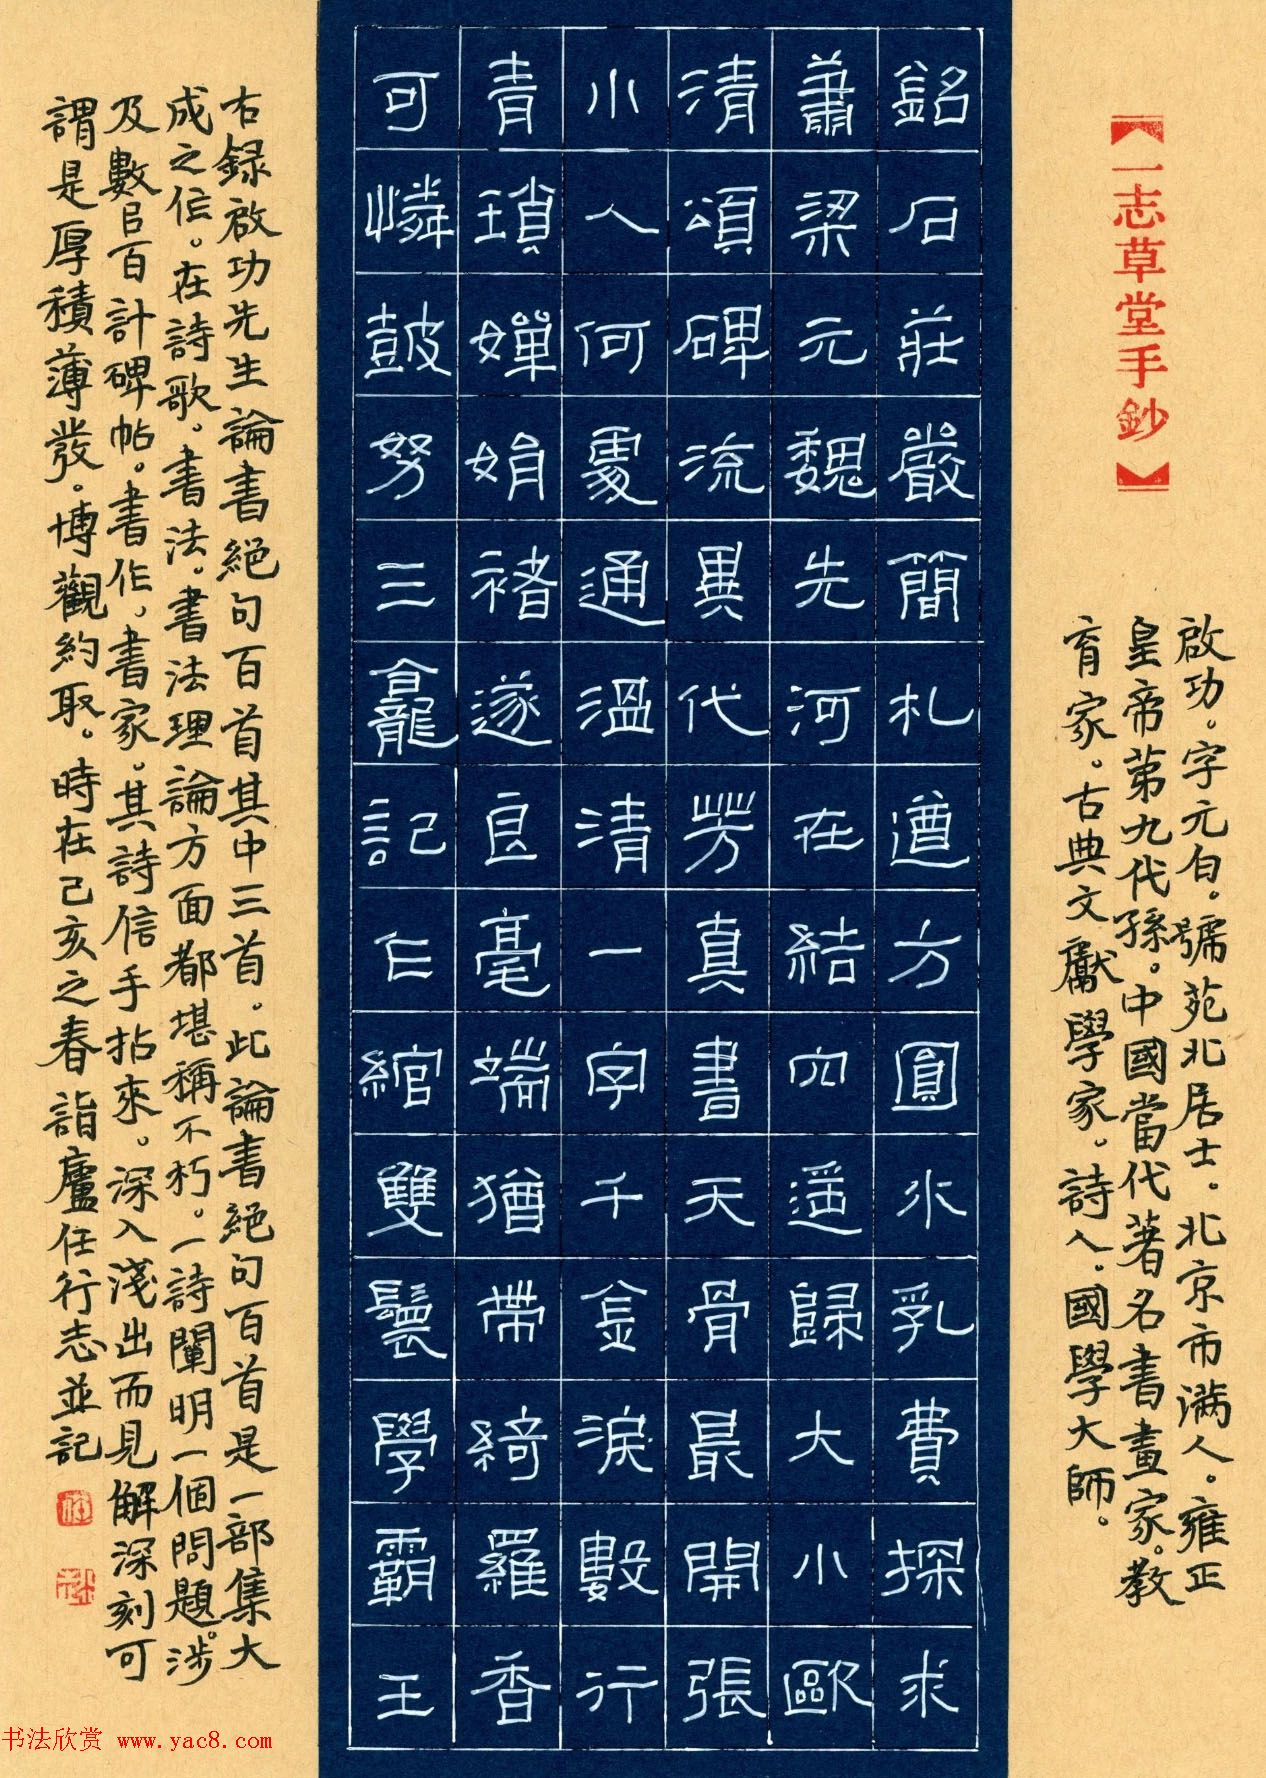 【一志草堂手鈔】
啟功。字元白。號苑北居士。北京市满人。雍正
皇帝第九代孫。中國當代著名書畫家。教
育家。古典文獻學家。詩人。國學大師。
銘石莊嚴簡札遒方圓水乳費探求
蕭梁元魏先河在結穴遥歸大小歐
清頌碑流異代芳真書天骨最開張
小人何處通溫清一字千金淚數行
青瑣嬋娟褚遂良毫端猶帶綺羅香
可憐鼓努三龕記仁綰雙鬟學霸王
右録啟功先生論書絕句百首其中三首。此論書絕句百首是一部集大
成之作。在詩歌、書法、書法理論方面都堪稱不朽。一詩闡明一個問題。涉
及數以百計碑帖。書作、書家。其詩信手拈來。深入淺出而見解深刻可
謂是厚積薄發。博觀約取。時在己亥之春詣廬任行志並記
书法欣赏 www.yac8.com